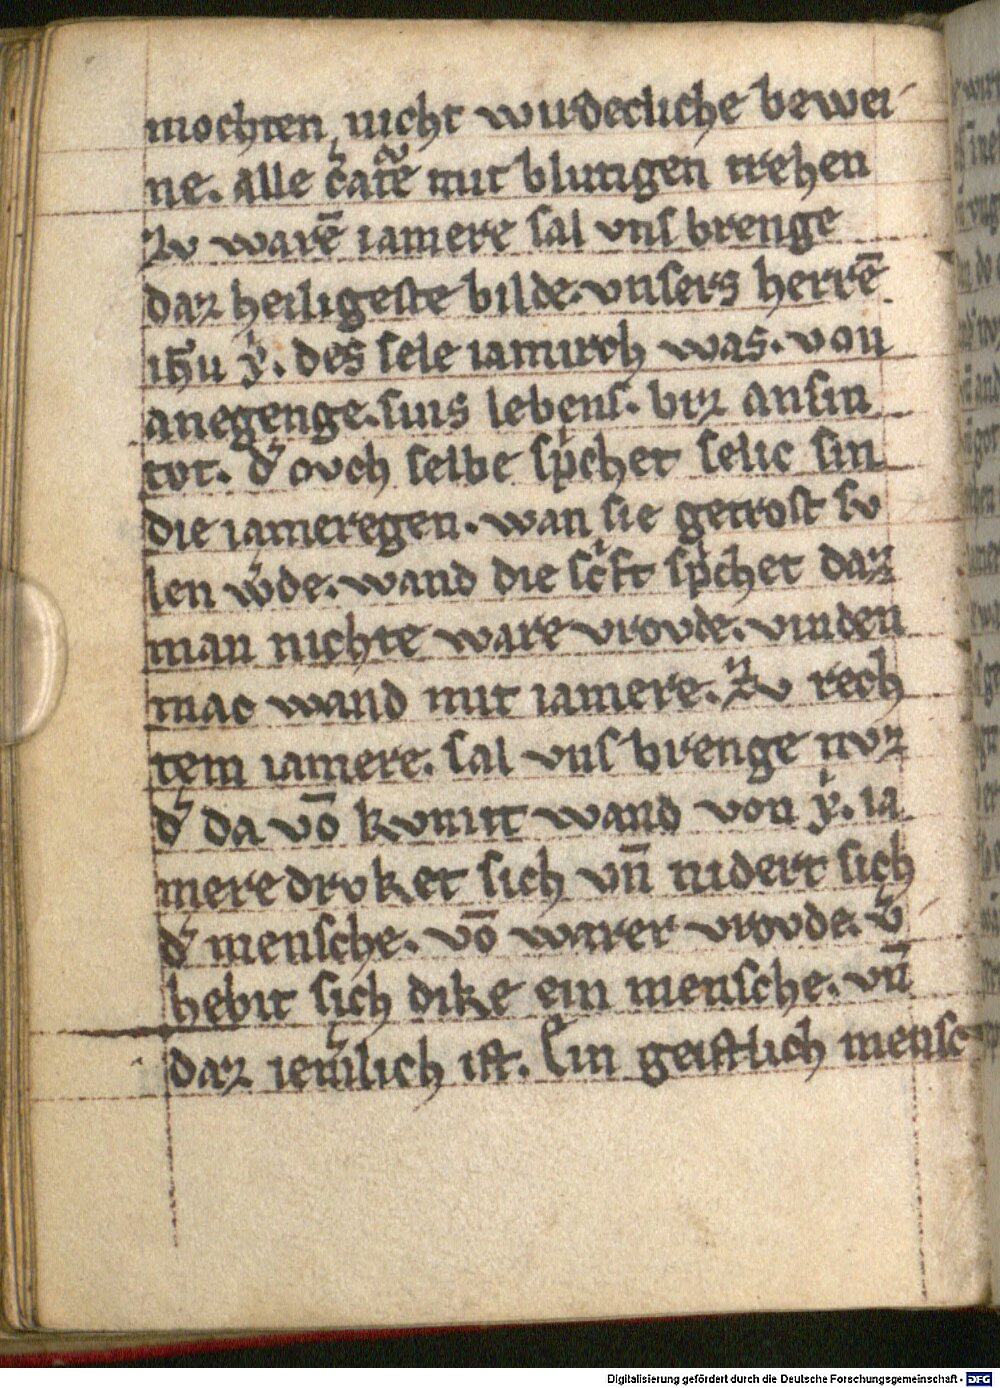 mochten nicht wirdecliche bewei
ne. alle c̄atē mit blutigen trehen
Zv warē iamere sal vns brenge
daz heiligeste bilde. vnsers herrē
ih̄u x̓. des sele iamirch was. von
anegenge. sins lebens. biz an sin
tot. d̓ ovch selbe sp̓chet selic sin
die iameregen. wan sie getrost sv
len w̓de. wand die sc̓ft sp̓chet daz
man nichte ware vrovde. vinden
mac wand mit iamere. Zv rech
tem iamere. sal vns brenge nvz
d̓ da vō kvmit wand von x̓. ia
mere drvket sich vn̄ nidert sich
d̓ mensche. vō warer vrovde. v̓
hebit sich dike ein mensche. vn̄
daz iem̓lich ist. Ein geistlich mensc
Digitalisierung gefördert durch die Deutsche Forschungsgemeinschaft - DFG